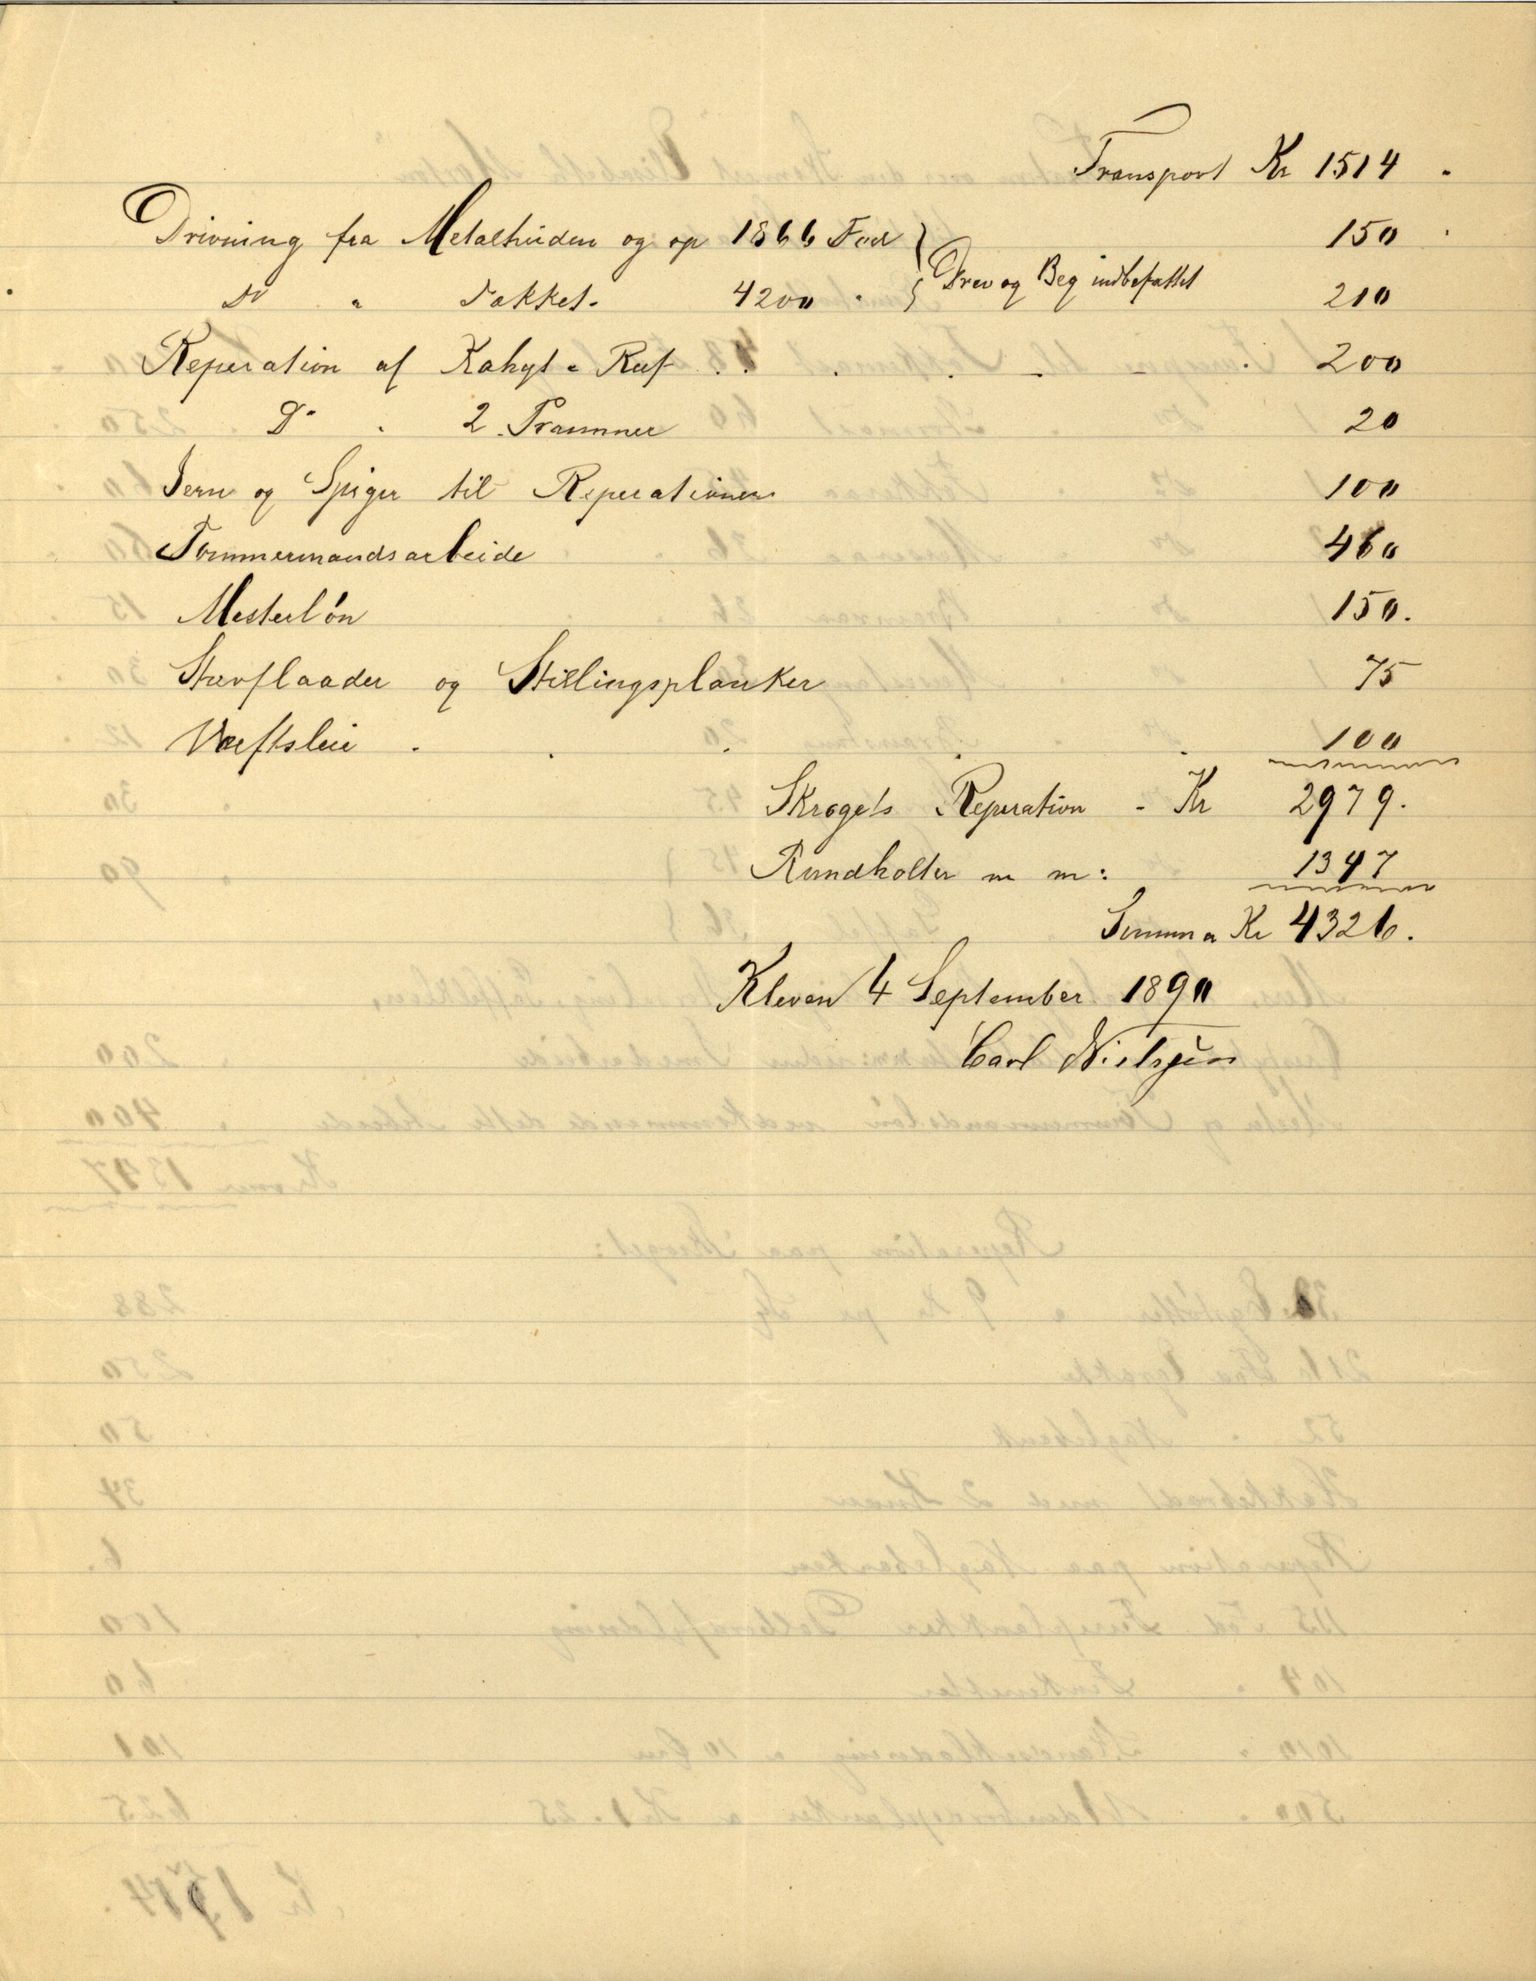 Transport Kr 1514 .
Drivning fra Metalhuden og op 1866 Fod } 150 .
Do " Dækket. 4200 " } Drev og Beg indbefattet 210
Reperation af Kahyt & Ruf . . . . - - . 200
Do " 2 Prammer 20
Jern og Spiger til Reperationen 100
Tømmermandsarbeide 460
Mesterløn 150.
Stævflaader og Stillingsplanker 75
Værftsleie . . . . . 100
Skrogets Reperation - Kr 2979.
Rundholter m m: 1347
Summa Kr 4326.
Kleven 4 September 1890
Carl Nielsen